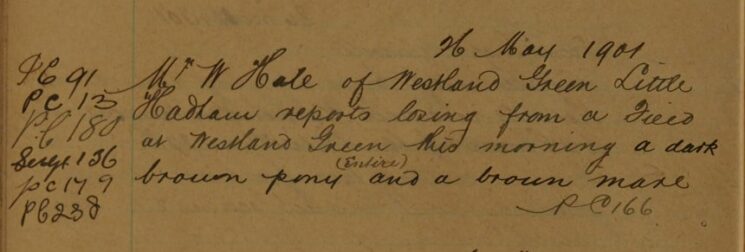 26 May 1901
PC 91
PC 13
PC 180
Sergt 136
PC 179
PC 238
Mr W Hale of Westland Green Little
Hadham reports losing from a Field
at Westland Green this morning a dark
(Entire)
brown pony and a brown mare
PC 166